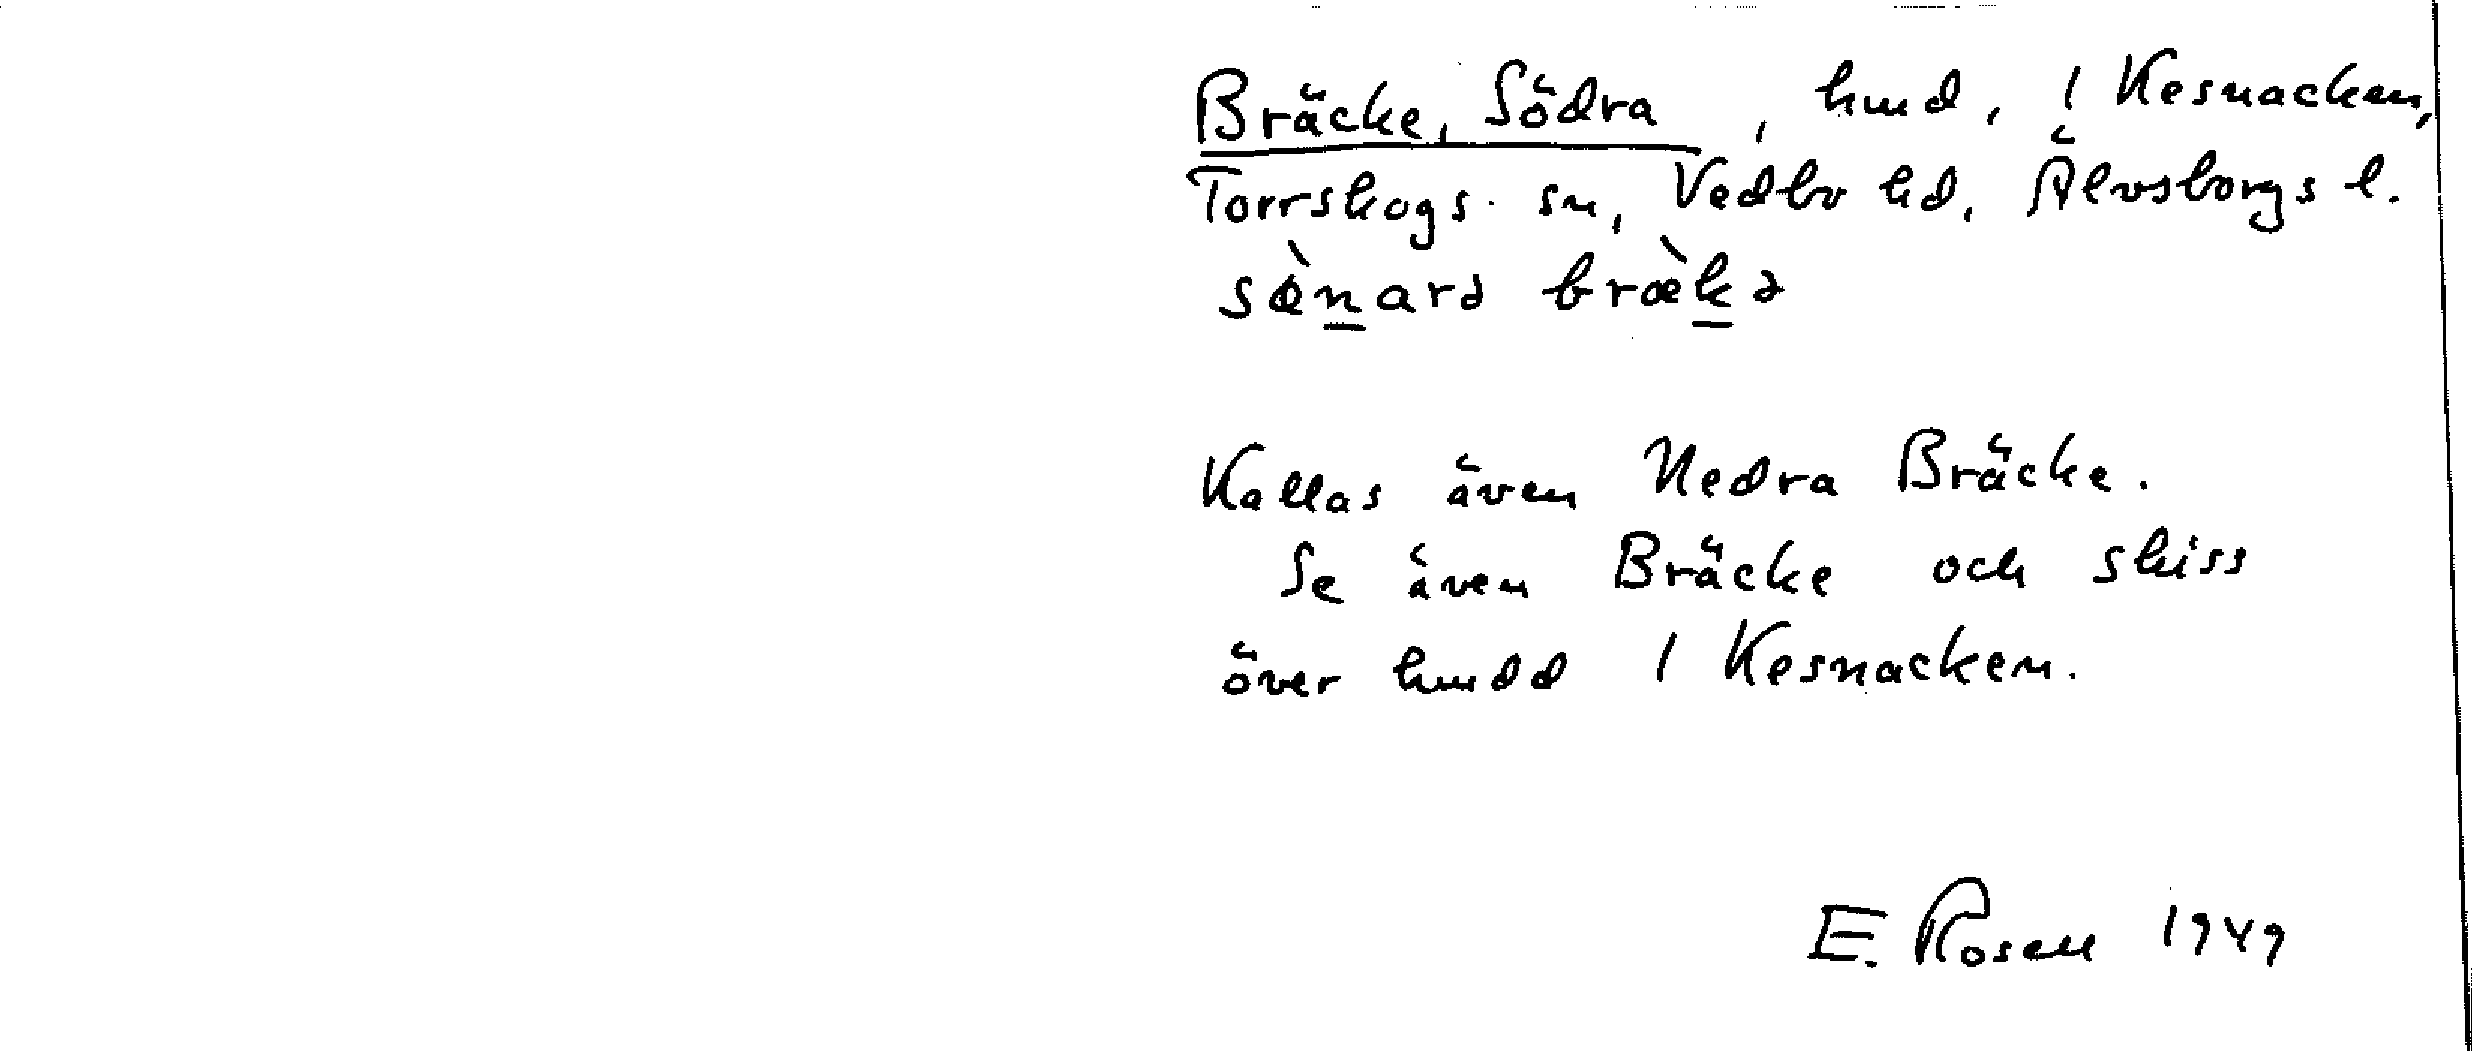 Bräcke, Södra, hmd, 1 Kesnacken,
Torrskogs sn, Vedbo hd, Älvsborgs l.
sø̀narə bræ̀kə
Kallas även Nedra Bräcke.
Se även Bräcke och skiss
över hmdd 1 Kesnacken.
E. Rosell 1949